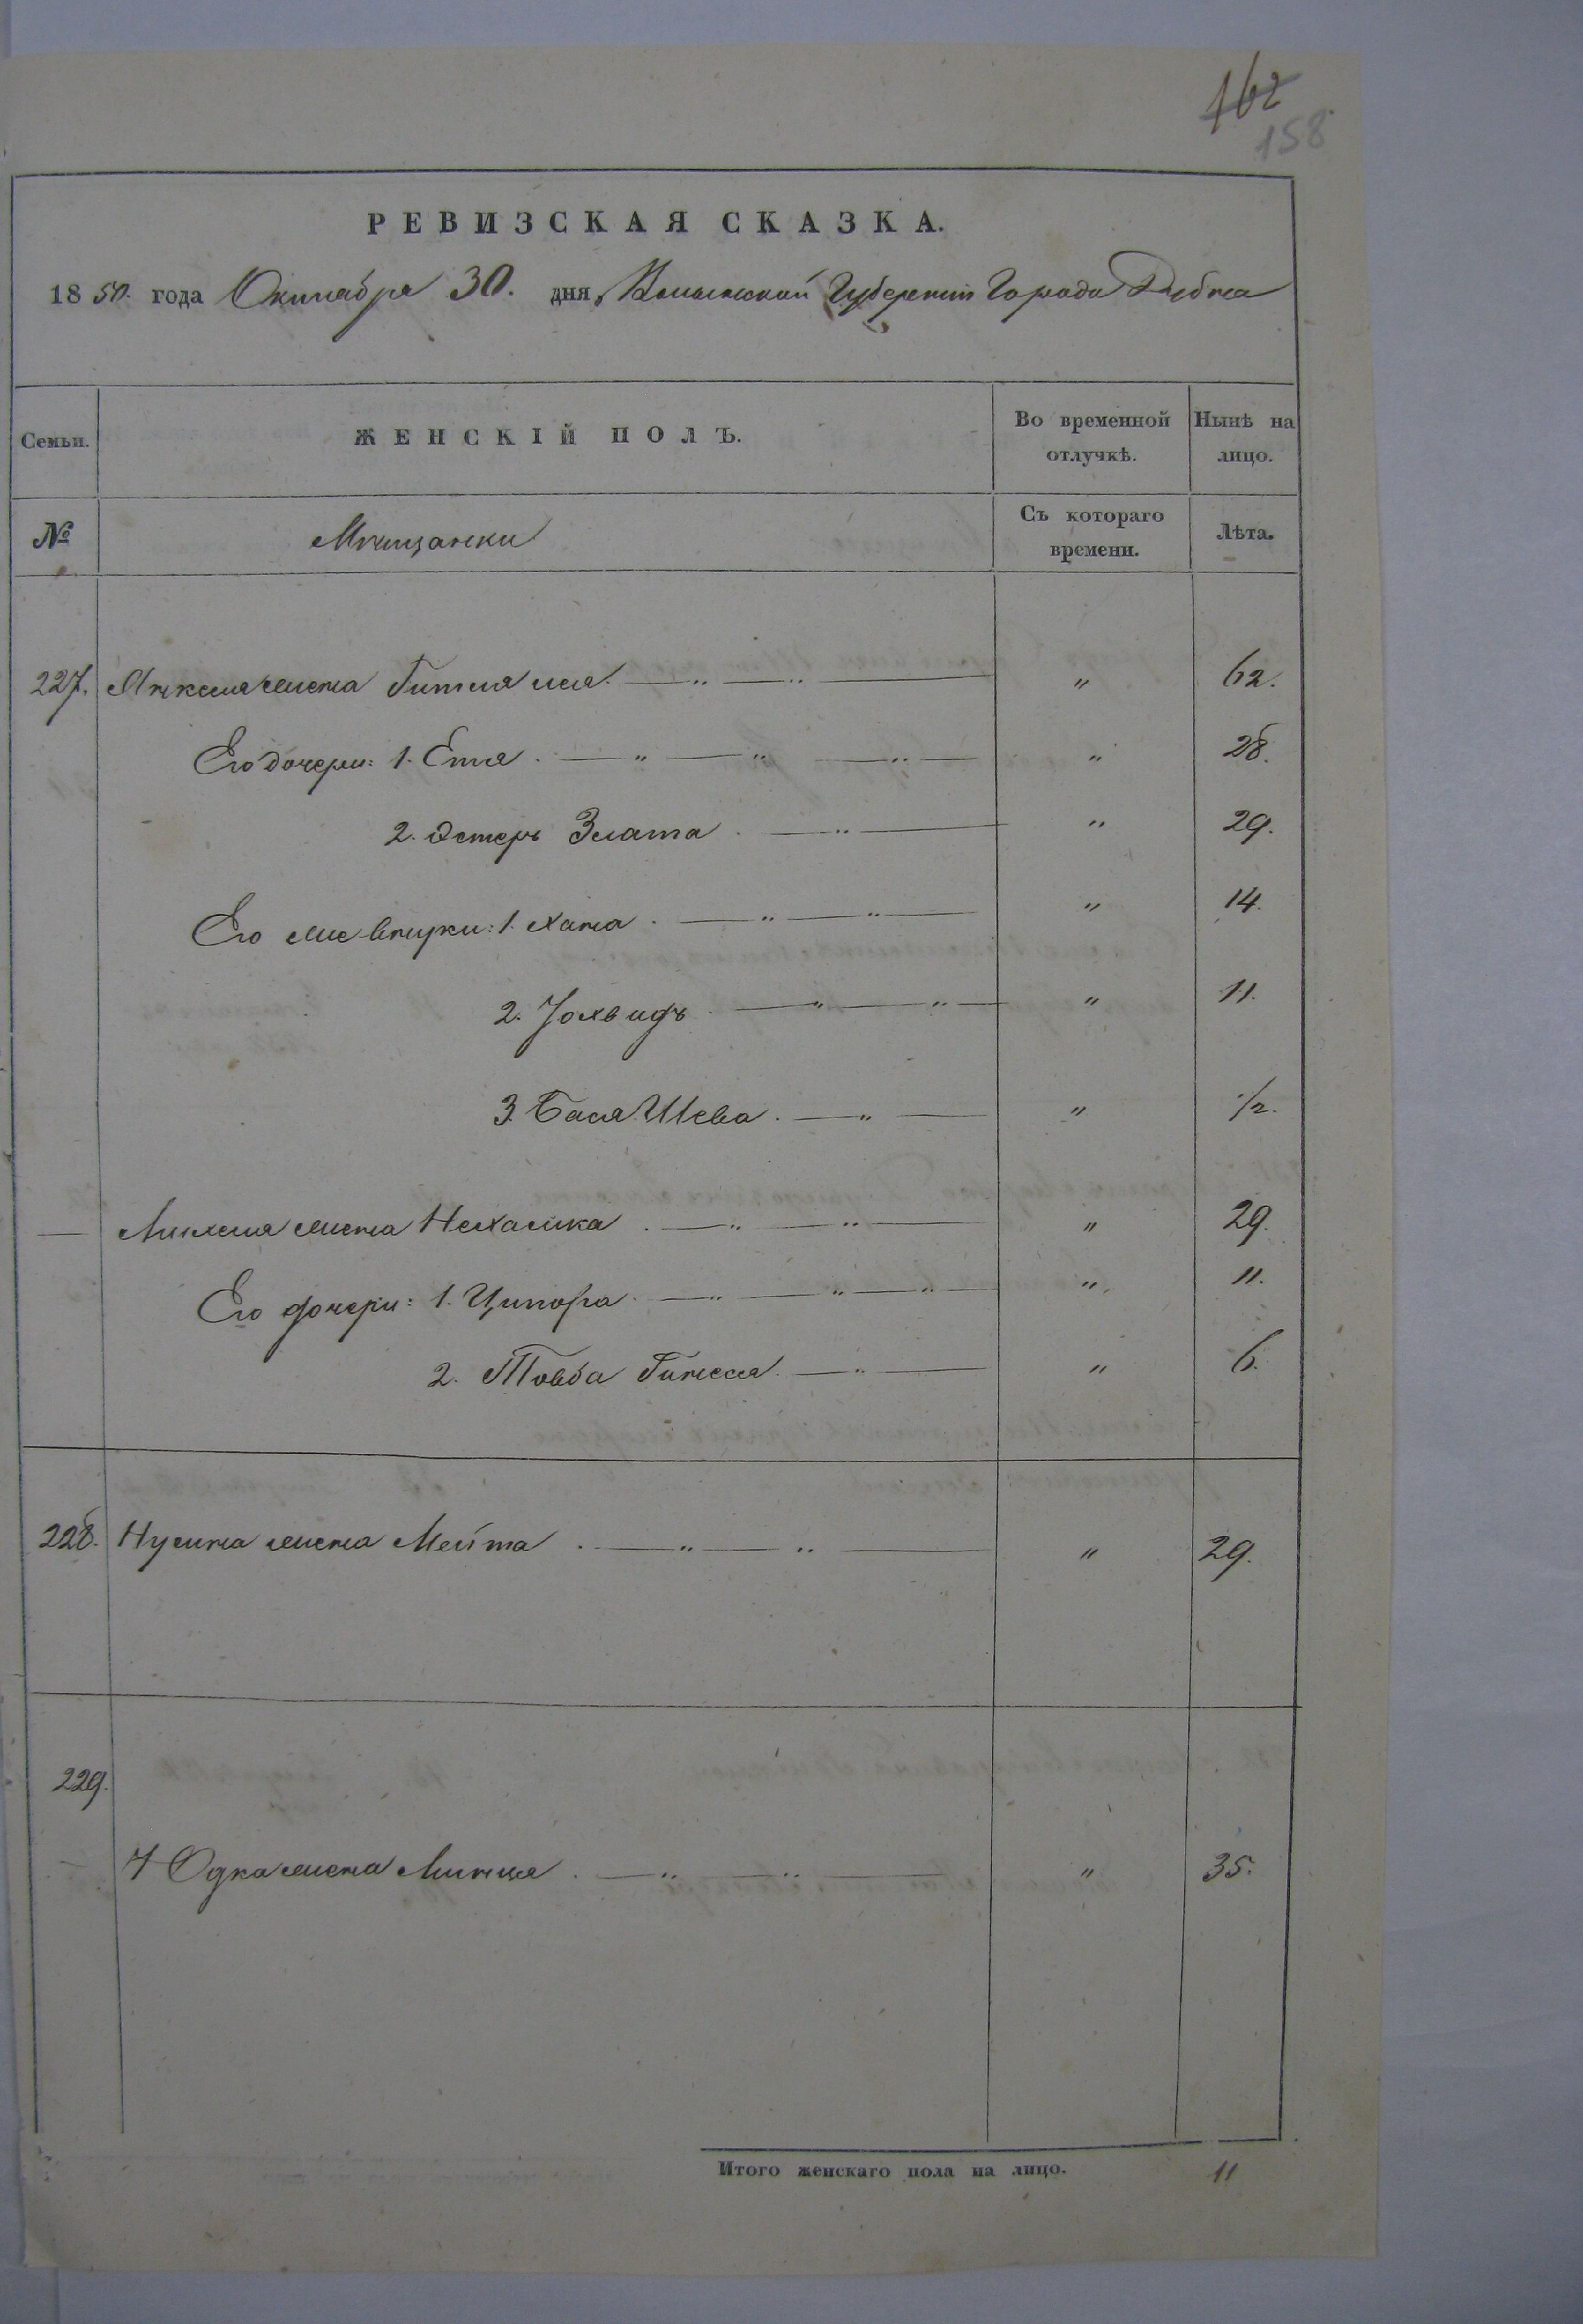 162
158
РЕВИЗСКАЯ СКАЗКА.
1850. года Октября 30. дня, Волынской Губернии Города Дубна
Семьи.
ЖЕНСКІЙ ПОЛЪ.
Во временной отлучкѣ.
Нынѣ на лицо.
№
Мѣщанки
Съ котораго времени.
Лѣта.
227. Янкеля жена Гитля Лея. — „ — „ — „ 62.
Его дочери: 1. Етя. — „ — „ — „ — „ 28.
2. Эстерь Злата. — „ — „ 29.
Его же внуки: 1. Хана. — „ — „ — „ 14.
2. Іохвидъ. — „ — „ — „ 11.
3. Бася Шева. — „ — „ 1/2.
— Михеля жена Нехамка. — „ — „ — „ 29.
Его дочери: 1. Ципора. — „ — „ — „ — „ 11.
2. Товба Гинеся. — „ — „ 6.
228. Нухима жена Мейта. — „ — „ — „ 29.
229.
жена Минця. — „ — „ — „ 35.
Итого женскаго пола на лицо. 11